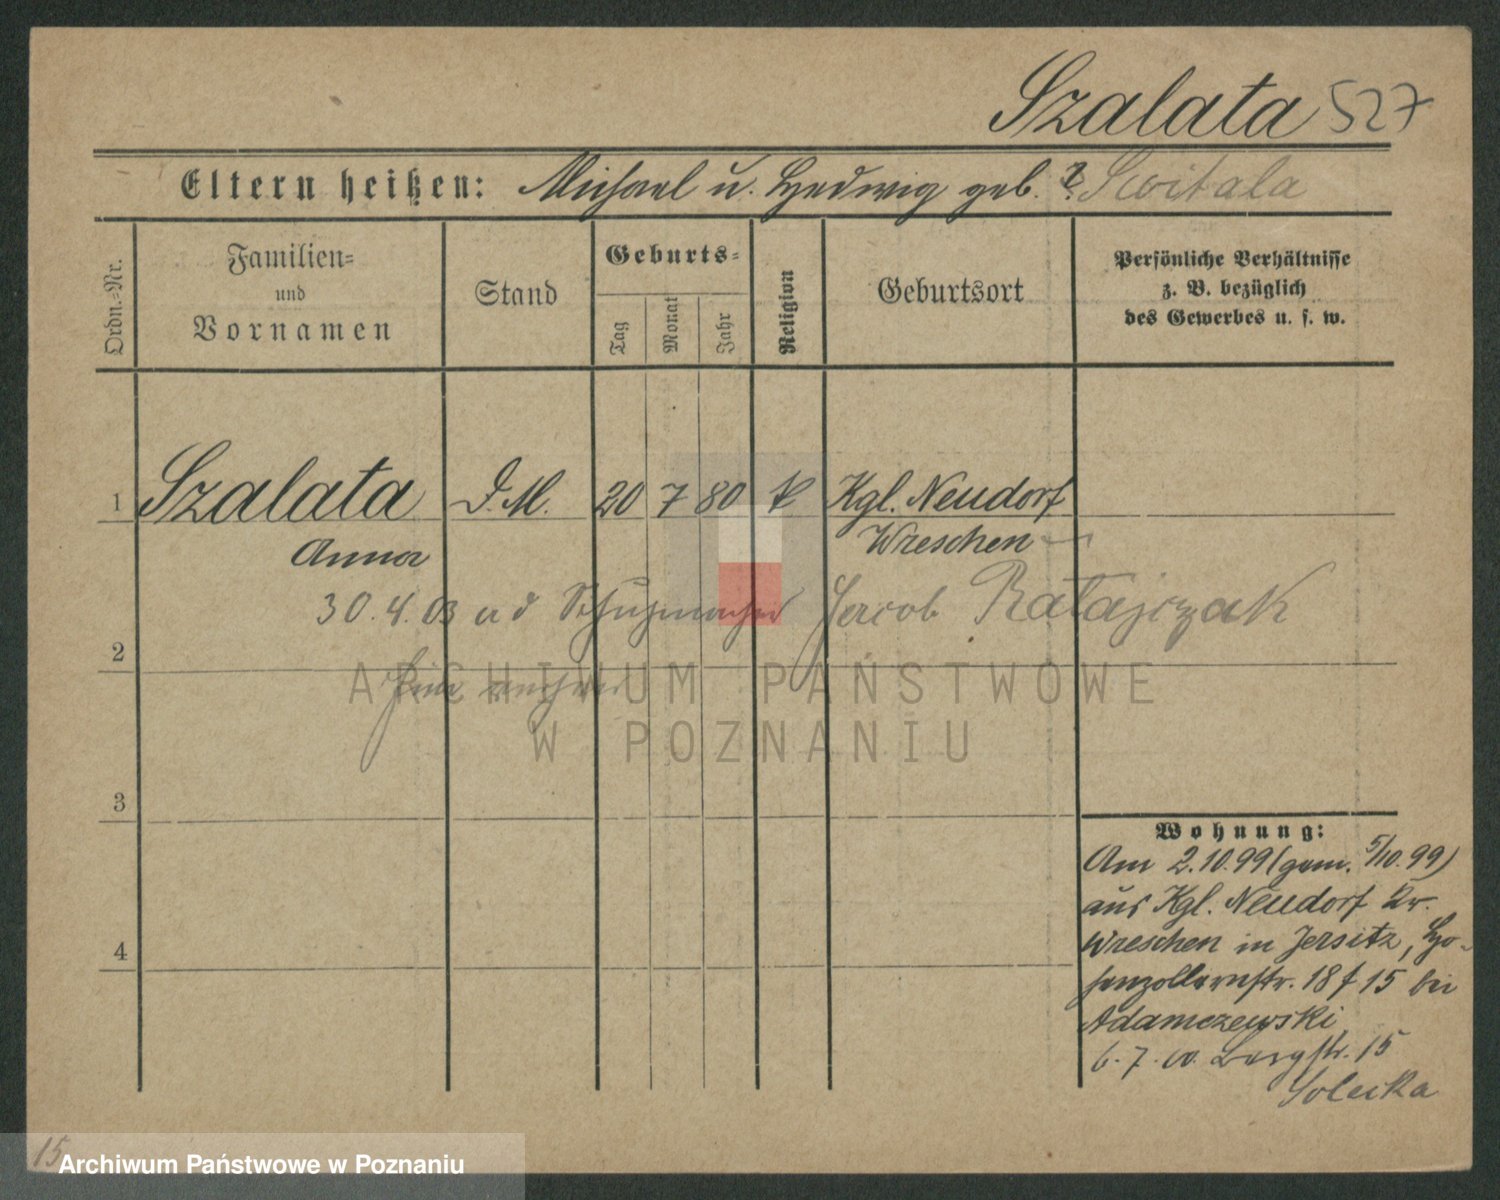 Szalata 527
Eltern heißen: Michael u. Hedwig geb. ? Switala
Ordn.=Nr.
Familien=
und
Vornamen
Stand
Geburts=
Tag
Monat
Jahr
Religion
Geburtsort
Persönliche Verhältnisse
z. B. bezüglich
des Gewerbes u. s. w.
1 Szalata D. M. 20 7 80 k Kgl. Neudorf
Anna Wreschen
30.4.03 Schuhmacher Jacob Ratajczak
2
ARCHIWUM PAŃSTWOWE
W POZNANIU
3
Wohnung:
Am 2.10.99 (gem. 5/10.99)
aus Kgl. Neudorf Kr.
4 Wreschen in Jersitz, Ho-
henzollernstr. 18 f 15 bei
Adamczewski
6.7.00 Bergstr. 15
Solecka
15
Archiwum Państwowe w Poznaniu